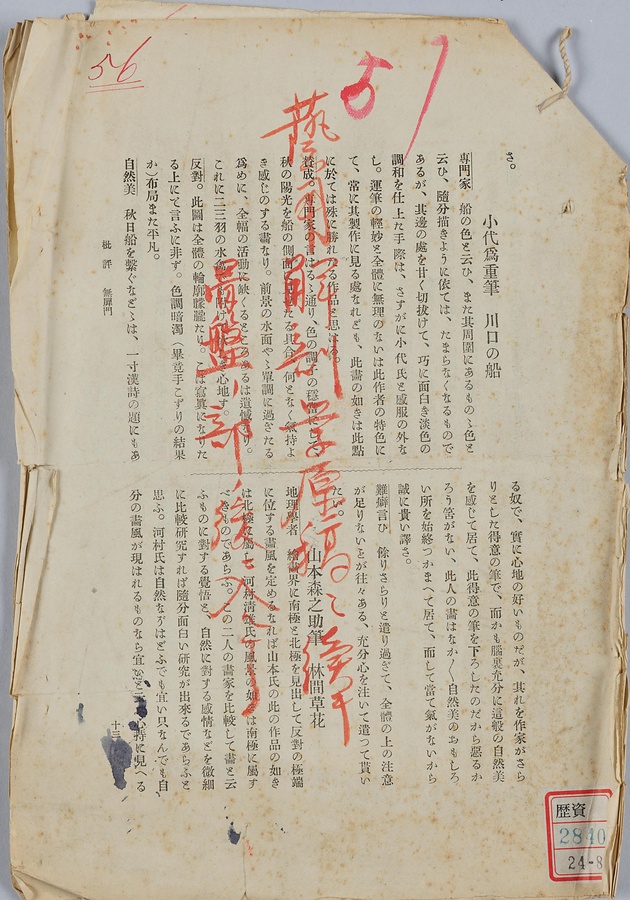 56
51
さ。
小代爲重筆　川口の船
専門家　船の色と云ひ、また其周圍にあるものゝ色と
云ひ、隨分描きように依ては、たまらなくなるもので
あるが、其邊の處を甘く切拔けて、巧に面白き淡色の
調和を仕上た手際は、さすがに小代氏と感服の外な
し。運筆の輕妙と全體に無理のないは此作者の特色に
て、常に其製作に見る處なれども、此畵の如きは此點
に於ては殊に勝れたる作品と思はる。
賛成　專門家の言はるゝ通り、色の調子の穩當にして、
秋の陽光を船の側面に
たる具合、何となく氣持よ
き感じのする畵なり。前景の水面やゝ單調に過ぎたる
爲めに、全幅の活動に缺くるところあるは遺憾なり。
これに二三羽の水
心地す。
反對。此圖は全體の輪廓朦朧たり。
は寫眞になりた
る上にて言ふに非ず。色調暗濁（畢竟手こずりの結果
か）布局また平凡。
自然美　秋日船を繋ぐなどゝは、一寸漢詩の題にもあ
批評　無厠門
る奴で、實に心地の好いものだが、其れを作家がさら
りとした得意の筆で、而かも腦裏充分に這般の自然美
を感じて居て、此得意の筆を下ろしたのだから惡るか
ろう筈がない、此人の畵はなか〱自然美のおもしろ
い所を始終つかまへて居て、而して當て氣がないから
誠に貴い譯さ。
難癖言ひ　餘りさらりと遣り過ぎて、全體の上の注意
が足りないとが往々ある、充分心を注いで遣つて貰い
た。
山本森之助筆　林間草花
地理學者　繪畵界に南極と北極を見出して反對の極端
に位する畵風を定めるなれば山本氏の此の作品の如き
は北極に屬し、河村清雄氏の風景の如きは南極に屬す
べきものであらふ。この二人の畵家を比較して畵と云
ふものに對する覺悟と、自然に對する感情などを微細
に比較研究すれば隨分面白い研究が出來るであらふと
思ふ。河村氏は自然なヲはどふでも宜い只なんでも自
分の畵風が現はれるものなら宜いと云
心持に見へる
十三
歴資
2840
24-8